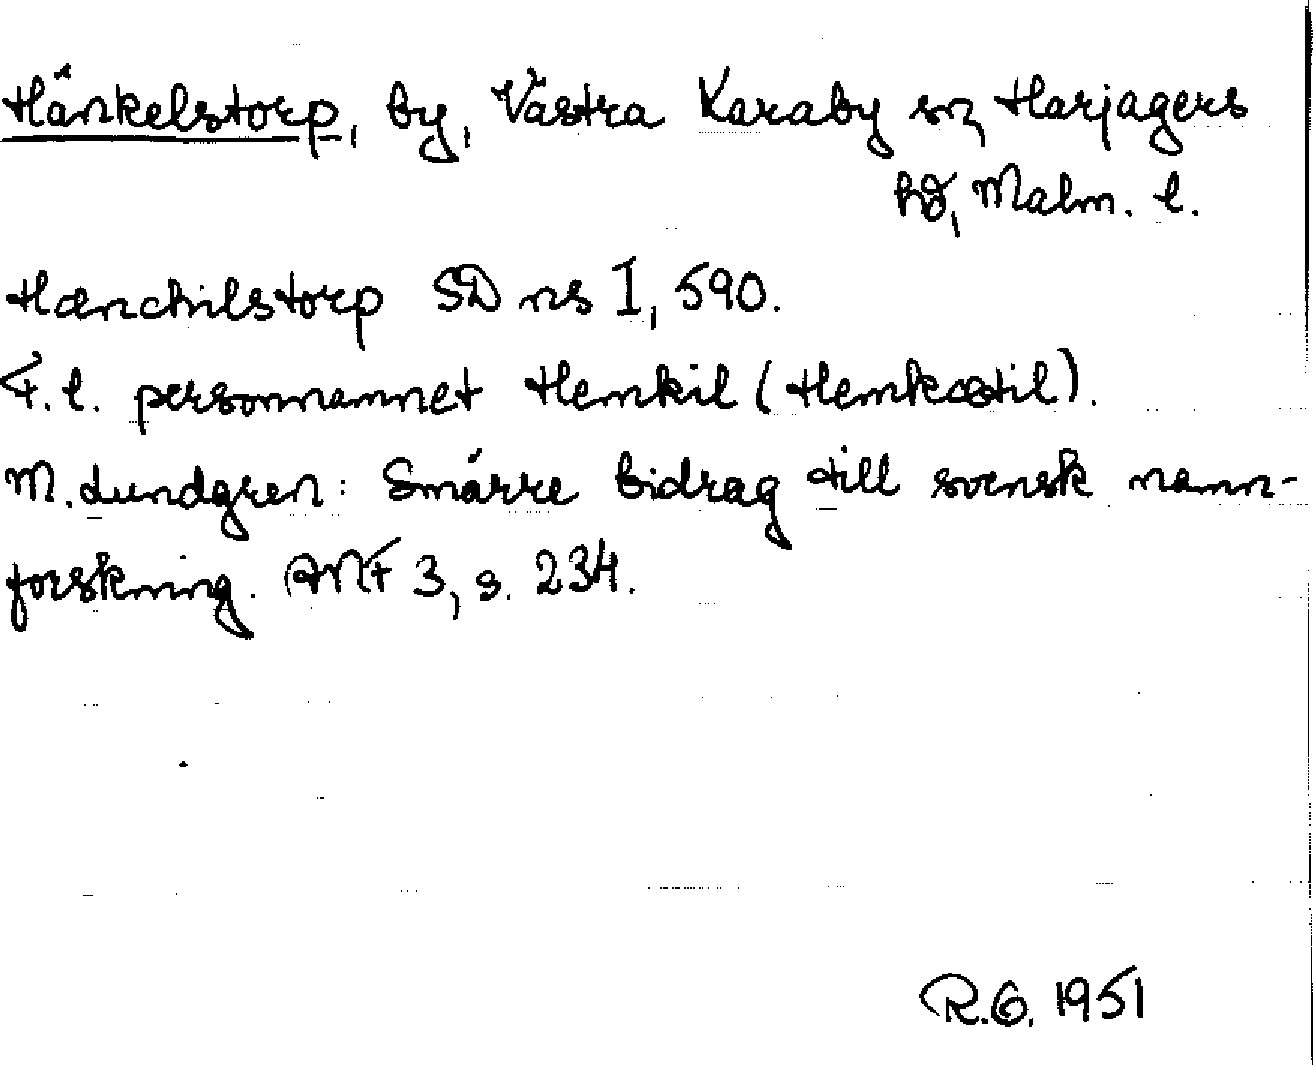 Hänkelstorp, by, Västra Karaby sn, Harjagers
hd, Malm. l.
Hænchilstorp SD ns I, 590.
F. l. personnamnet Henkil (Henkætil).
M. Lundgren: Smärre bidrag till svensk namn-
forskning. ANF 3, s. 234.
R.G. 1951